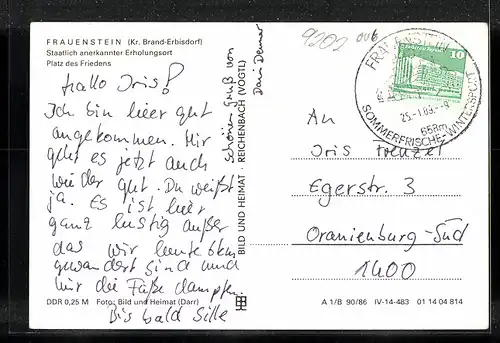 FRAUENSTEIN (Kr. Brand-Erbisdorf)
Staatlich anerkannter Erholungsort
Platz des Friedens
Hallo Iris!
Ich bin hier gut
angekommen. Mir
geht es jetzt auch
wieder gut. Du weißt
ja. Es ist hier
ganz lustig außer
das wir heute 6km
gewandert sind und
mir die Füße dampfen.
Bis bald Sille
DDR 0,25 M Foto: Bild und Heimat (Darr)
schönen Gruß von
BILD UND HEIMAT · REICHENBACH (VOGTL)
9202
FRAUENSTEIN
10
25.-1.89.-9
655m
SOMMERFRISCHE-WINTERSPORT
An
Iris Frenzel
Egerstr. 3
Oranienburg-Süd
1400
A 1/B 90/86 IV-14-483 01 14 04 814